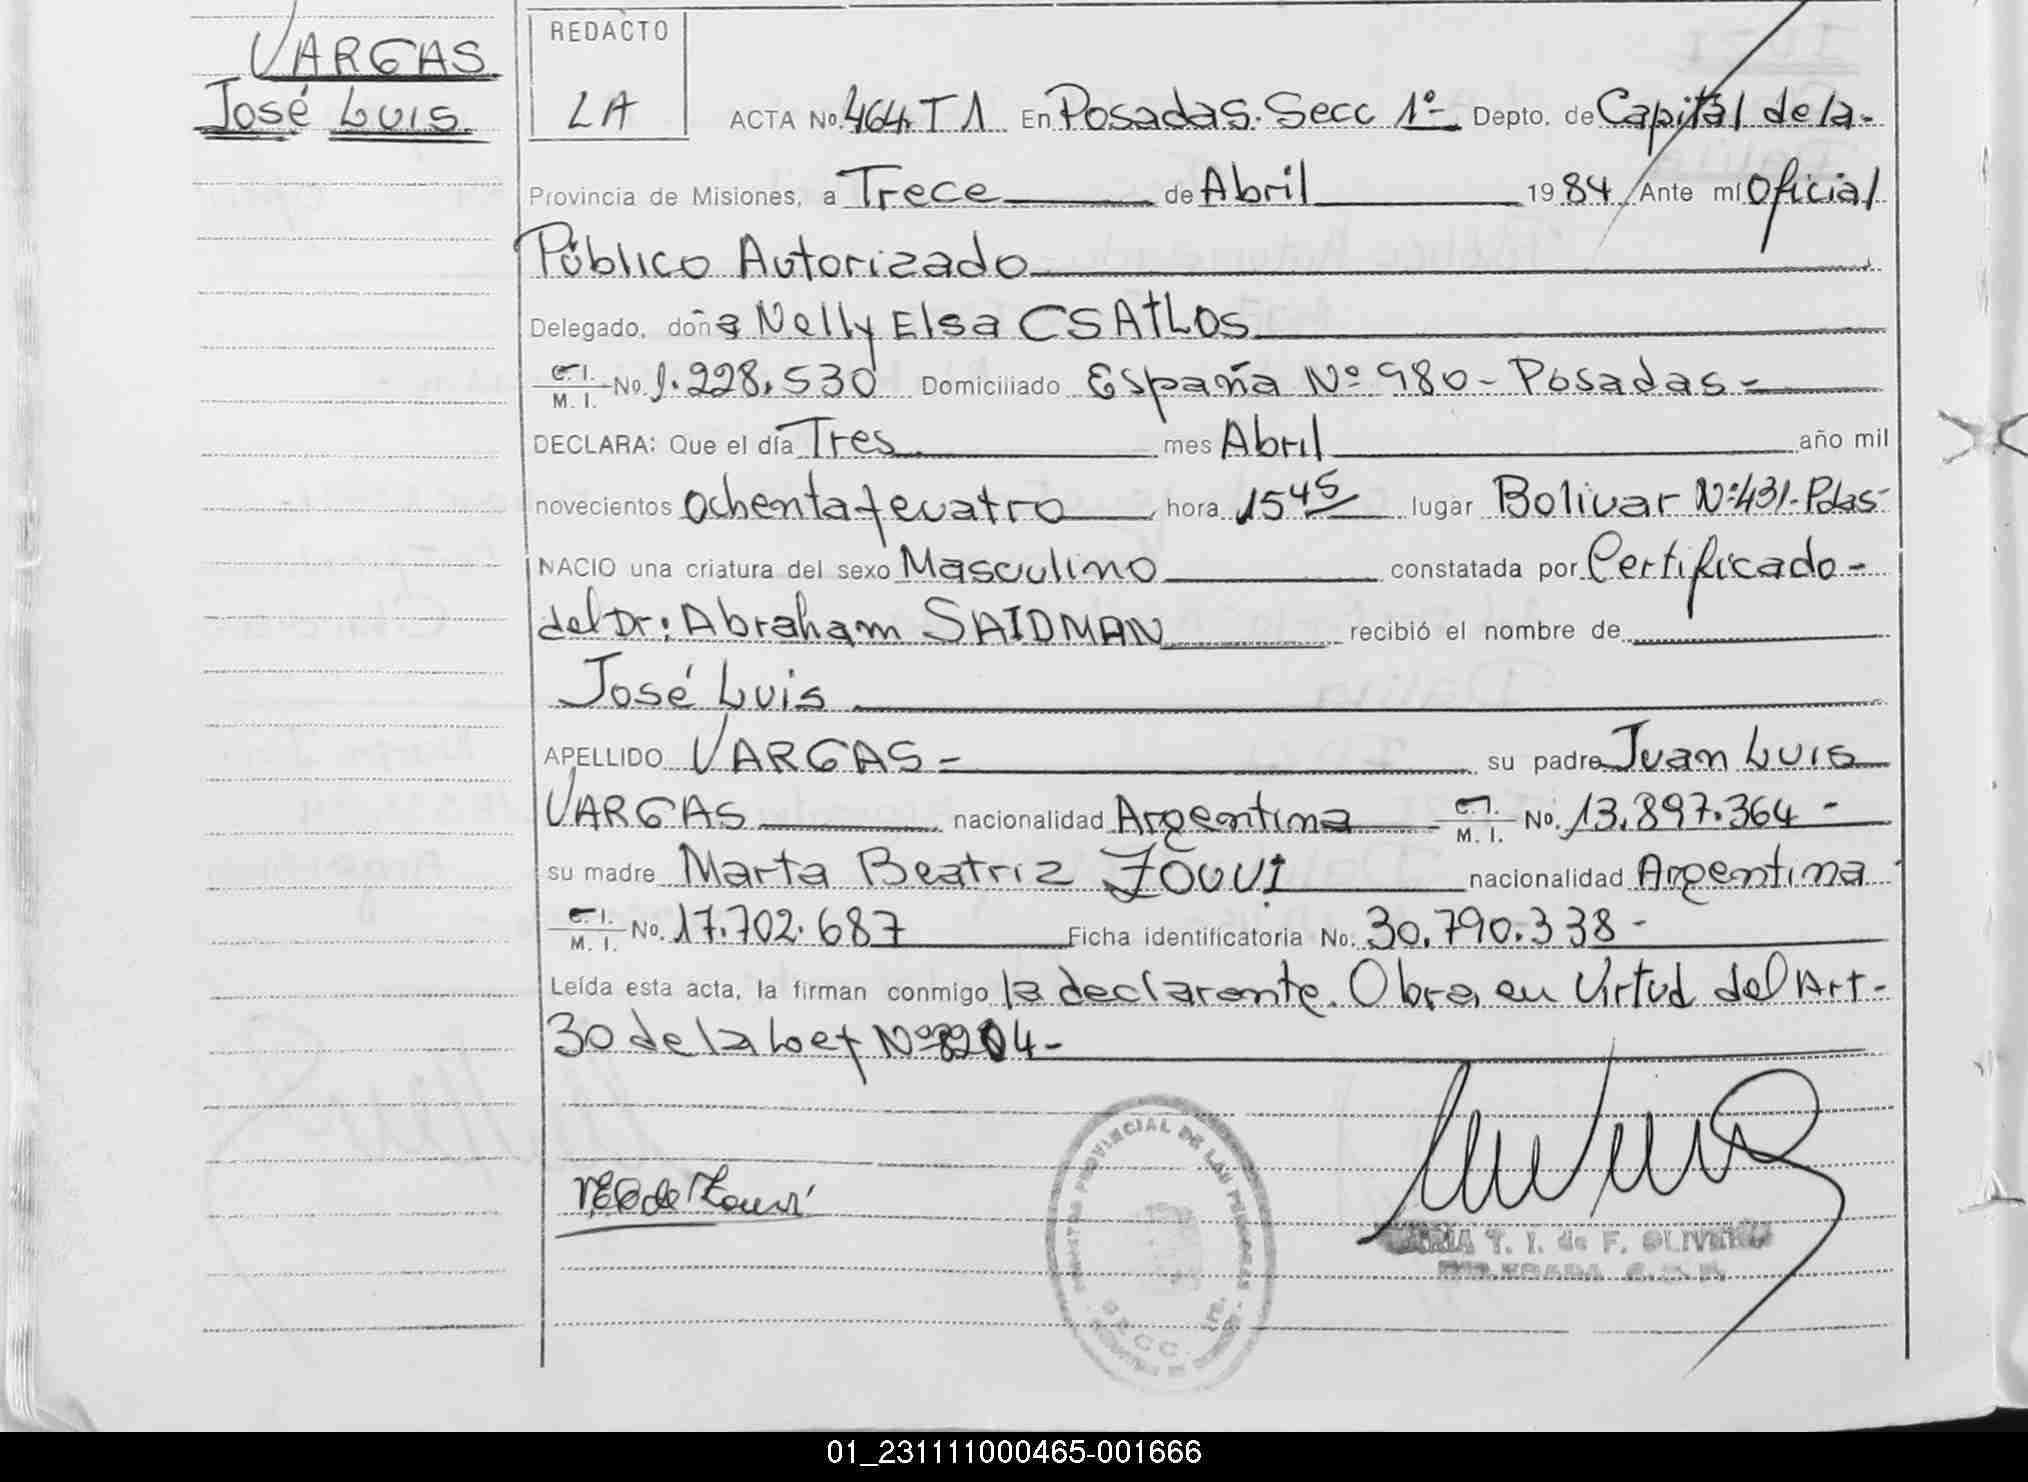 VARGAS
José Luis
REDACTO
LA
ACTA No. 464. T 1 En Posadas. Secc 1º- Depto. de Capital de la-
Provincia de Misiones, a Trece de Abril 1984 Ante mí Oficial
Público Autorizado
Delegado, doña Nelly Elsa CSATLOS
C. I. M. I. No. 1.228.530 Domiciliado España Nº 980- Posadas-
DECLARA: Que el día Tres mes Abril año mil
novecientos ochenta y cuatro hora 15 45 lugar Bolivar Nº 431-Pdas-
NACIO una criatura del sexo Masculino constatada por Certificado-
del Dr: Abraham SAIDMAN recibió el nombre de
José Luis
APELLIDO VARGAS- su padre Juan Luis
VARGAS nacionalidad Argentina C. I. M. I. No. 13.897.364-
su madre Marta Beatriz nacionalidad Argentina
C. I. M. I. No. 17.702.687 Ficha identificatoria No. 30.790.338-
Leída esta acta, la firman conmigo la declarante. Obra en Virtud del Art-
30 de la Ley Nº 8204-
REGISTRO PROVINCIAL DE LAS PERSONAS
T. I. de F. OLIVEIRA
DELEGADA
01_231111000465-001666